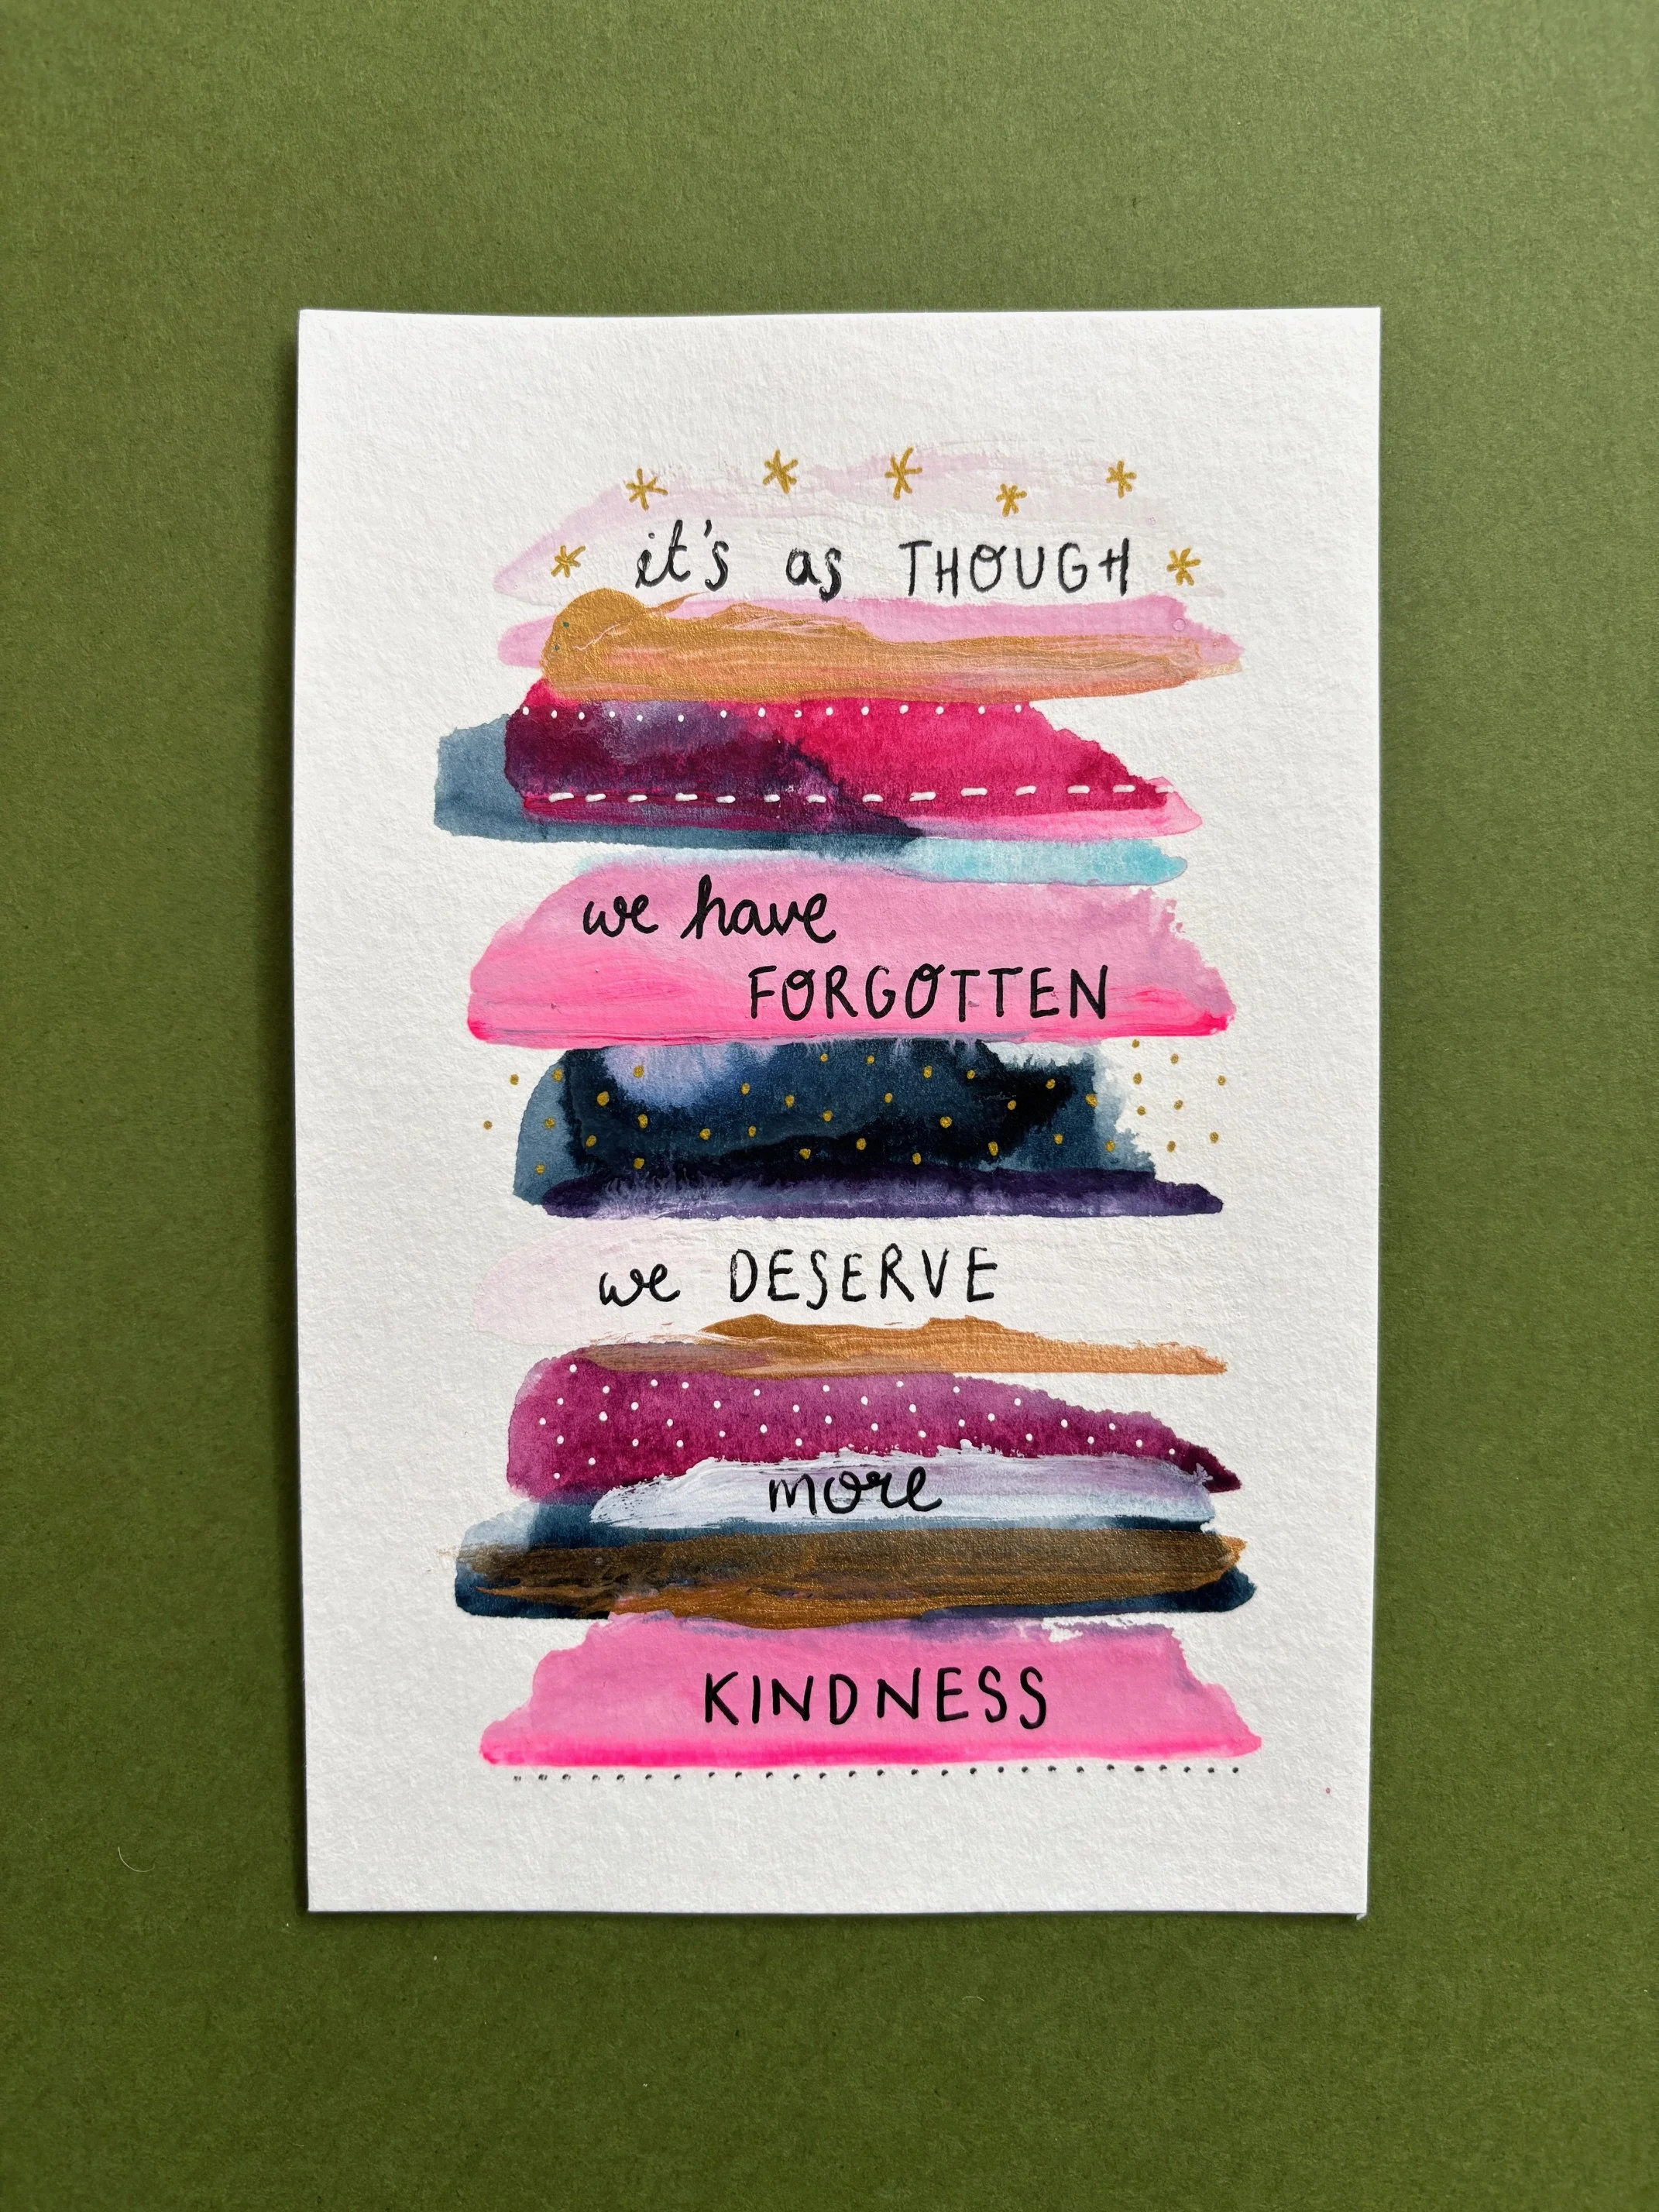 it's as THOUGH
we have
FORGOTTEN
we DESERVE
more
KINDNESS